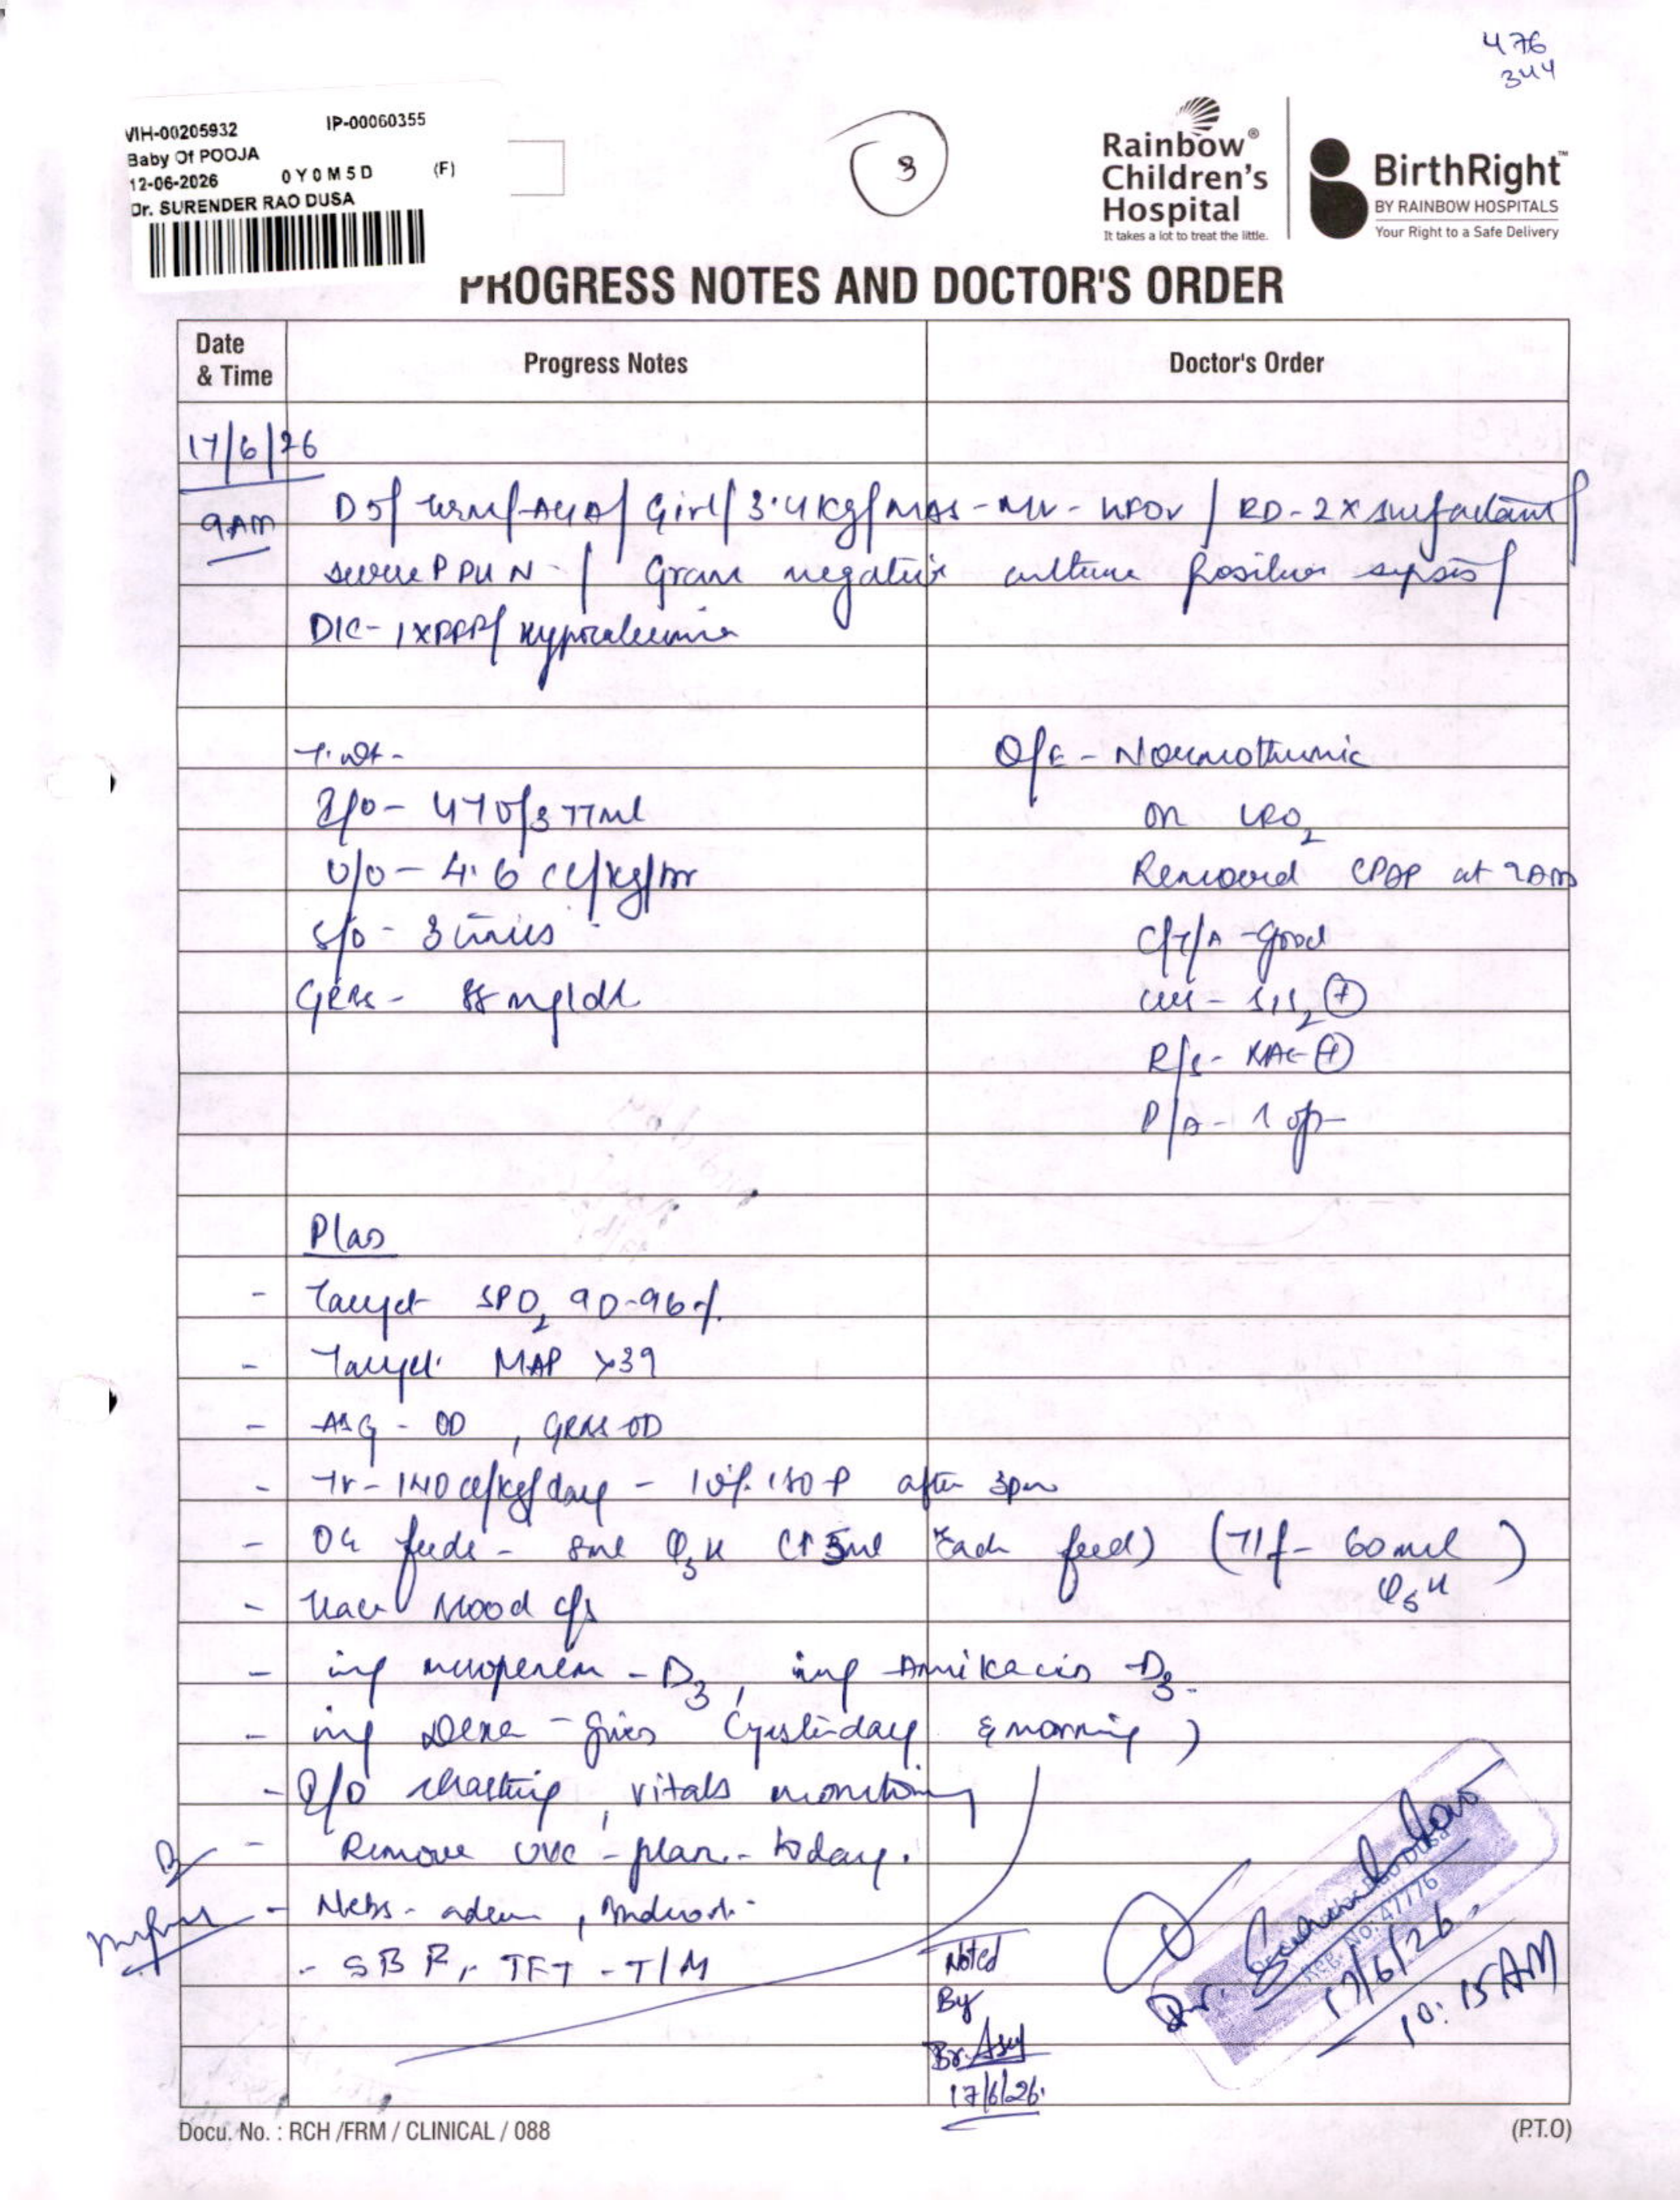 476
344
VIH-00205932 IP-00060355
Baby Of POOJA
12-06-2026 0Y0M5D (F)
Dr. SURENDER RAO DUSA
3
Rainbow®
Children's
Hospital
It takes a lot to treat the little.
BirthRight™
BY RAINBOW HOSPITALS
Your Right to a Safe Delivery
PROGRESS NOTES AND DOCTOR'S ORDER
Date
& Time
Progress Notes
Doctor's Order
17/6/26
9AM
D5/ term/ AGA/ Girl/ 3.4 kg/ MAS - MV - / RD - 2 x surfactant/
severe PPHN - / Gram negative culture positive sepsis/
DIC - 1 x / Hypocalcemia
T. wt -
I/O - 470/377ml
U/O - 4.6 cc/kg/hr
S/O - 3 times
GRBS - 88 mg/dl
O/E - Normothermic
on O2
Removed CPAP at
C/T/A - Good
CVS - S1S2 (+)
R/S - (+)
P/A -
Plan
- Target SPO2 90-96%.
- Target MAP >39
- ABG - OD, GRBS OD
- TF - 140 cc/kg/day - 10% P after 3pm
- OG feeds - 8ml Q3H (↑ 5ml Each feed) (TIf - 60 ml
)
- blood c/s
- inj meropenem - D3, inj Amikacin D3.
- inj Dexa - given (yesterday & morning)
- I/O charting, vitals monitoring
- Remove UVC - plan - today.
- Nebs -
- SBR, TFT - T/M
Noted
By
Br.
17/6/26.
Reg. No: 47776
17/6/26.
10:15 AM
Docu. No. : RCH /FRM / CLINICAL / 088
(P.T.O)